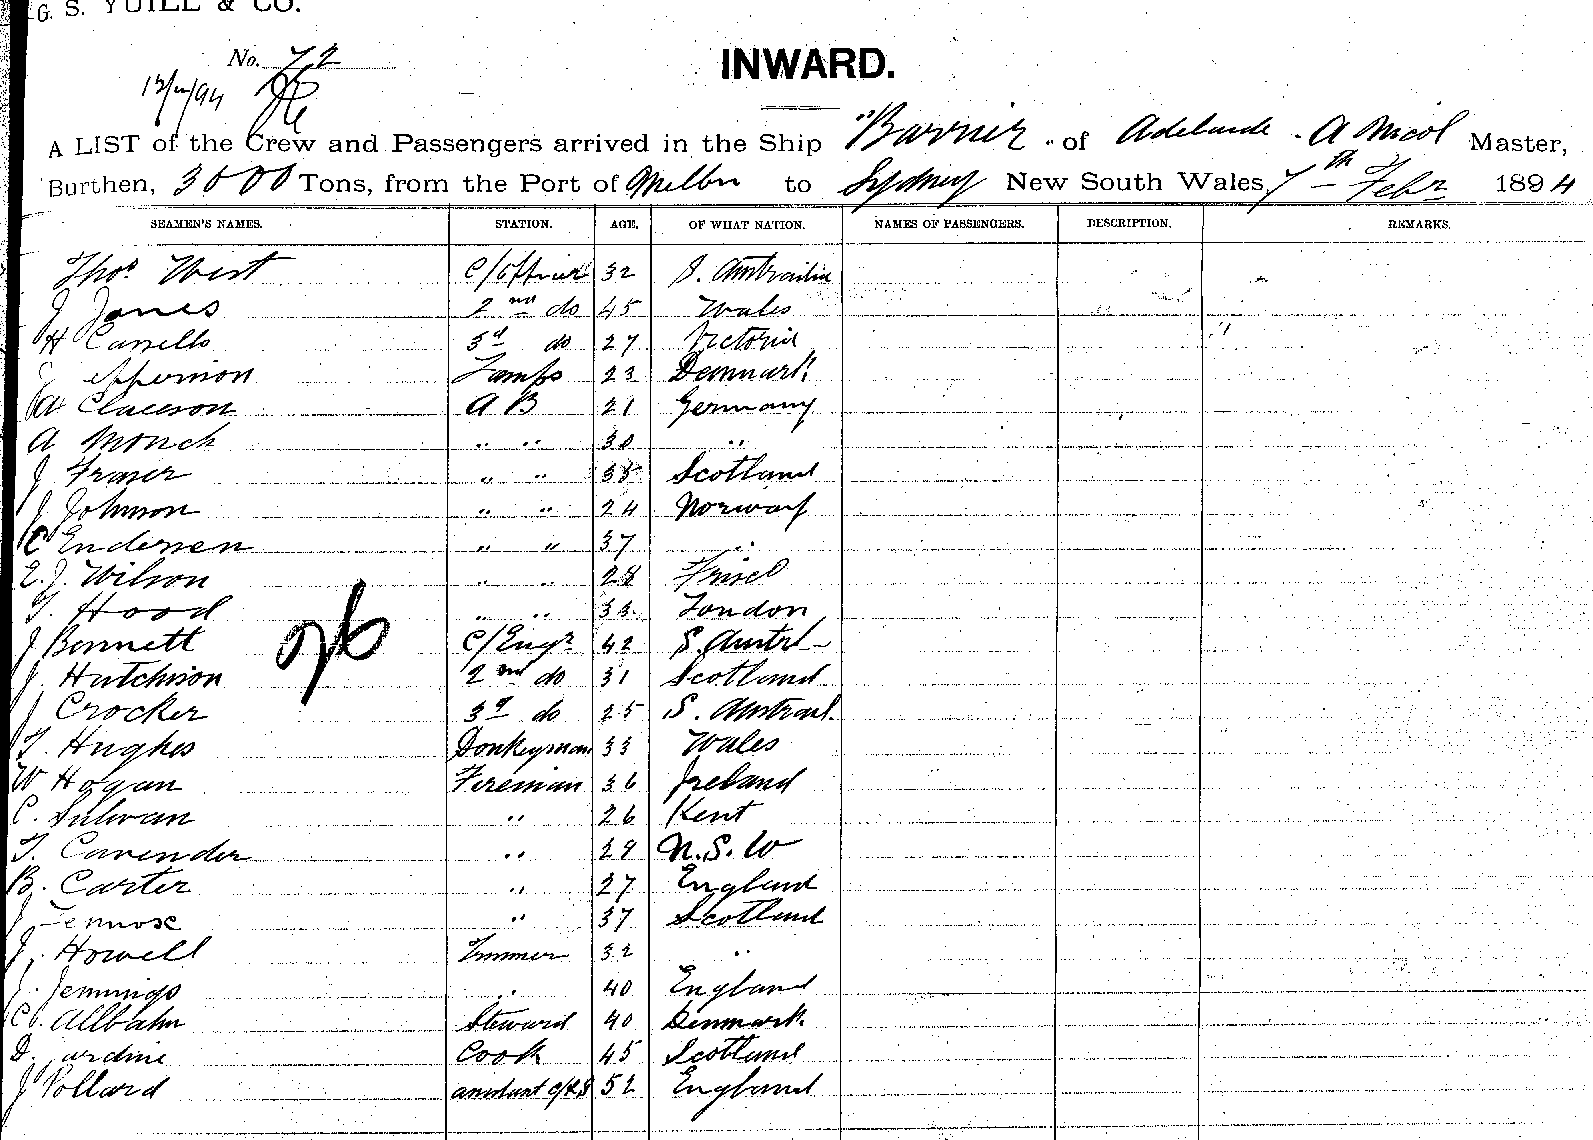 G. S. YUILL & CO.
No. 72
INWARD.
A LIST of the Crew and Passengers arrived in the Ship "Barrier" of Adelaide. A Nicol Master,
Burthen, 3000 Tons, from the Port of Melbn to Sydney New South Wales, 7th Febr 1894
SEAMEN'S NAMES. STATION. AGE. OF WHAT NATION. NAMES OF PASSENGERS. DESCRIPTION. REMARKS.
Thos West C/Officer 32 S. Australia
J Jones 2nd do 45 Wales
H 3d do 27 Victoria
Lamps 23 Denmark
Claeson A B 21 Germany
A Monch " " 30 "
J Fraser " " Scotland
J Johnson " " 24 Norway
C Endersen " " 37 "
E. J. Wilson " " 28
T. Hood " " London
J Bennett C/Engr 42 S. Austrl
J. Hutchison 2nd do 31 Scotland
J Crocker 3d do 25 S. Austral.
T. Hughes Donkeyman 33 Wales
W Hogan Fireman 36 Ireland
C. Sulivan " 26 Kent
T. Cavender " 29 N. S. W
B. Carter " 27 England
J Lennose " 37 Scotland
J. Howell Trimmer 32 "
J. Jennings " 40 England
C. Allbahn Steward 40 Denmark
D. Jardine Cook 45 Scotland
J Pollard assistant C&S 52 England